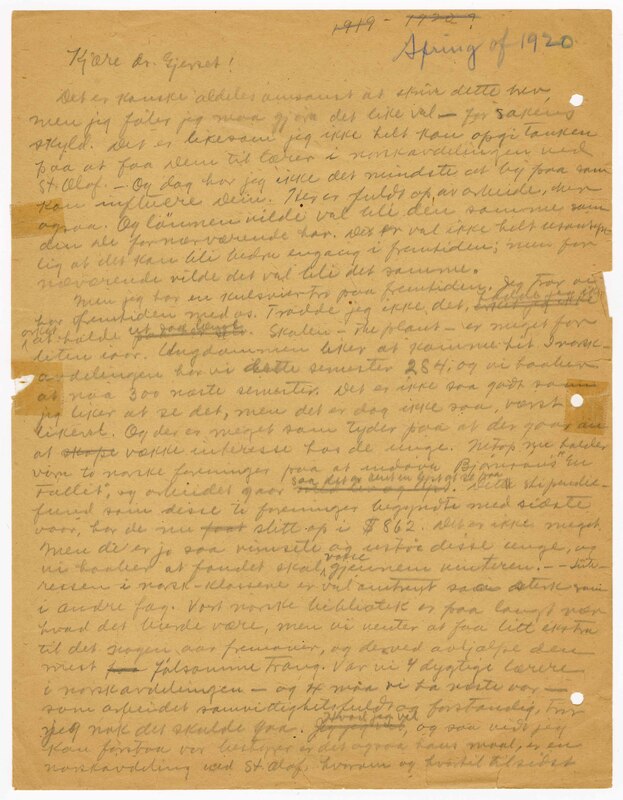 1919 - 1920?
Spring of 1920
Kjære dr. Gjerset!
Det er kanske aldeles omsonst at skrive dette brev
men jeg føler jeg maa gjøra det like vel – for sakens
skyld. Det er likesom jeg ikke helt kan opgi tanken
paa at faa Dem til lærer i norskavdelingen ved
St. Olaf. – Og dog har jeg ikke det mindste at by paa som
kan influere Dem. Her er fuldt op av arbeide, her
ogsaa. Og lønnen vilde vel bli den samme som
den De for nærværende har. Det er vel ikke helt
lig at det kan bli bedre engang i fremtiden; men for
nærværende vilde det vel bli det samme.
Men jeg har en paa fremtiden. Jeg tror vi
har fremtiden med os. Trodde jeg ikke det,
at holde Skolen – the plant – er meget for
liten iaar. Ungdommen liker at komme hit. I norsk-
avdelingen har vi dette semester 284, og vi haaber
at naa 300 næste semester. Det er ikke saa godt som
jeg liker at se det, men det er dog ikke saa værst
likevel. Og der er meget som tyder paa at der gaar an
at skape vække interesse hos de unge. Netop nu holder
vore to norske foreninger paa at indøve Bjørnsons "En
Fallit", og arbeidet gaar Det stipendie-
fund som disse to foreninger begyndte med sidste
vaar, har de nu faat slitt op i $862. Det er ikke meget.
Men de er jo saa disse unge, og
vi haaber at fondet skal vokse gjennem vinteren. – Inte-
ressen i norsk-klassene er vel omtrent saa sterk som
i andre fag. Vort norske bibliotek er paa langt nær
hvad det burde være, men vi venter at faa litt ekstra
til det nogen aar fremover, og derved avhjælpe den
mest faa følsomme trang. Var vi 4 dygtige lærere
i norskavdelingen – og 4 maa vi ha næste aar –
som arbeidet samvittighetsfuldt og forstandig, tror
jeg nok det skulde gaa. Hvad jeg vil og saa vidt jeg
kan forstaa vor bestyrer er det ogsaa hans maal, er en
norskavdeling ved St. Olaf hvorom og hvortil tilsidst